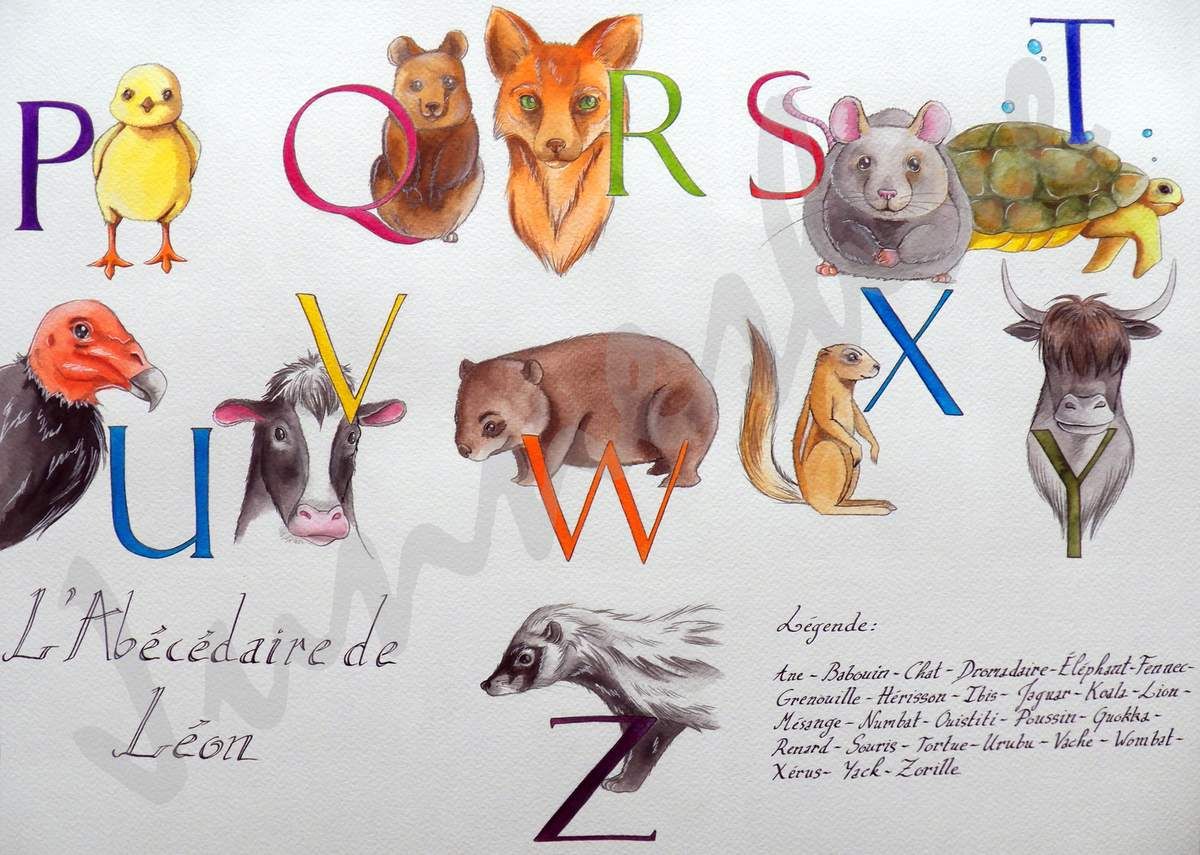 P Q R S T
U V W X Y
L'Abécédaire de
Léon
Z
Légende:
Ane - Babouin - Chat - Dromadaire - Éléphant - Fennec -
Grenouille - Hérisson - Ibis - Jaguar - Koala - Lion -
Mésange - Numbat - Ouistiti - Poussin - Quokka -
Renard - Souris - Tortue - Urubu - Vache - Wombat -
Xérus - Yack - Zorille